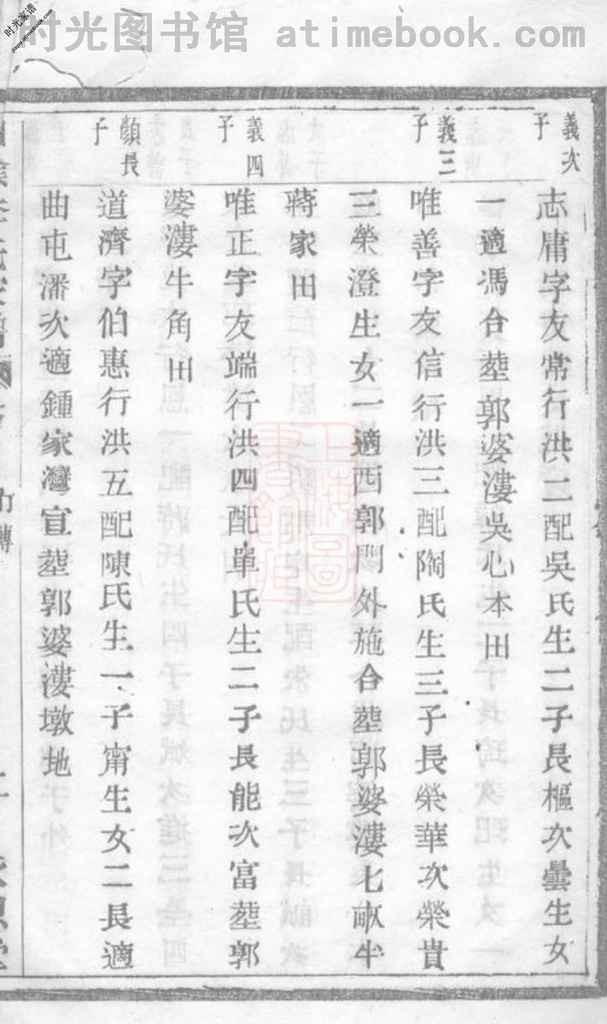 时光图书馆 atimebook.com
義次子
志庸字友常行洪二配吳氏生二子長樞次曇生女
一適馮合塟郭婆漊吳心本田
義三子
唯善字友信行洪三配陶氏生三子長榮華次榮貴
三榮澄生女一適西郭門外施合塟郭婆漊七畝半
蔣家田
義四子
唯正字友端行洪四配單氏生二子長能次富塟郭
婆漊牛角田
顥長子
道濟字伯惠行洪五配陳氏生一子甯生女二長適
曲屯潘次適鍾家灣宣塟郭婆漊墩地